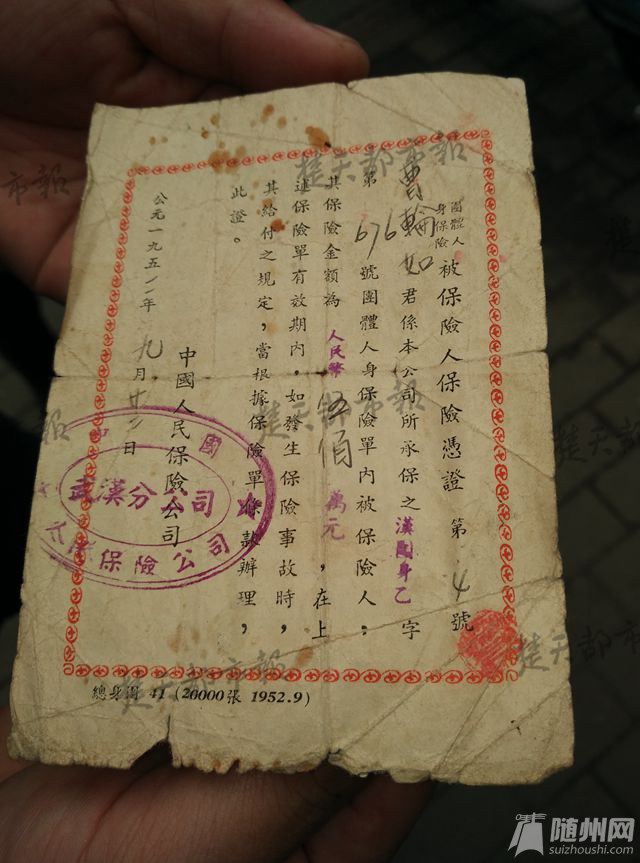 團體人
身保險
被保險人保險憑證 第4號
曹輪如君係本公司所承保之漢團身乙字
第676號團體人身保險單內被保險人。
其保險金額為人民幣伍佰萬元,在上
述保險單有效期內,如發生保險事故時,
其給付之規定,當根據保險單條款辦理,
此證。
中國人民保險公司
公元一九五二年九月廿二日
武漢分公司
保險公司
總身團 41 (20000張 1952.9)
楚天都市報
市報
楚天都市報
楚天都市報
楚天都市報
楚天都市報
随州网
suizhoushi.com